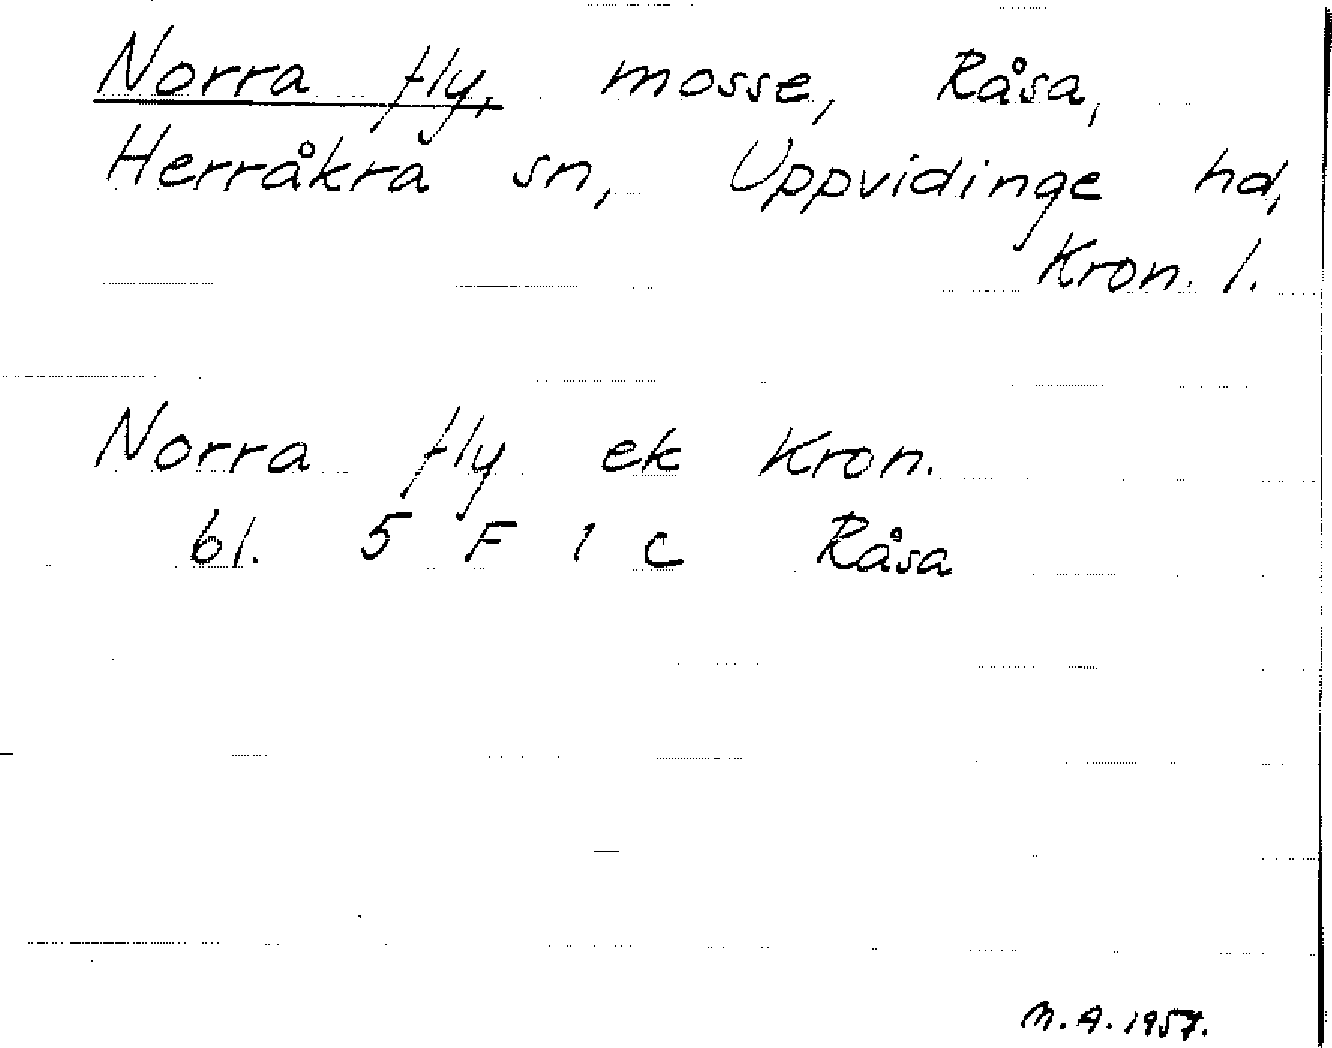 Norra fly, mosse, Råsa,
Herråkra sn, Uppvidinge hd,
Kron. l.
Norra fly ek Kron.
bl. 5 F 1 c Råsa
M.A. 1957.